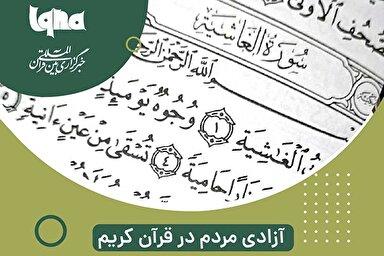 iqna
خبرگزاری بین‌المللی قرآن
صُحُفِ ٱلْأُولَىٰ
سُورَةُ ٱلْغَاشِيَةِ
ٱللَّهِ ٱلرَّحْمَٰنِ ٱلرَّحِيمِ
ٱلْغَٰشِيَةِ ١ وُجُوهٌ يَوْمَئِذٍ
نَارًا حَامِيَةً ٤ تُسْقَىٰ مِنْ عَيْنٍ ءَانِيَةٍ ٥
آزادی مردم در قرآن کریم